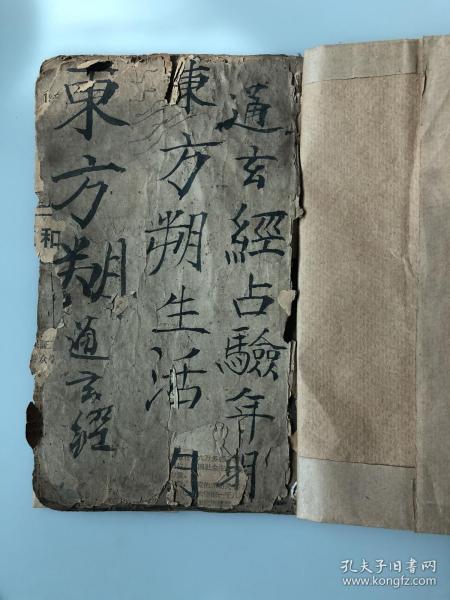 通玄經占驗年明
東方朔生活 月
東方朔通玄經
和
孔夫子旧书网
www.kongfz.com